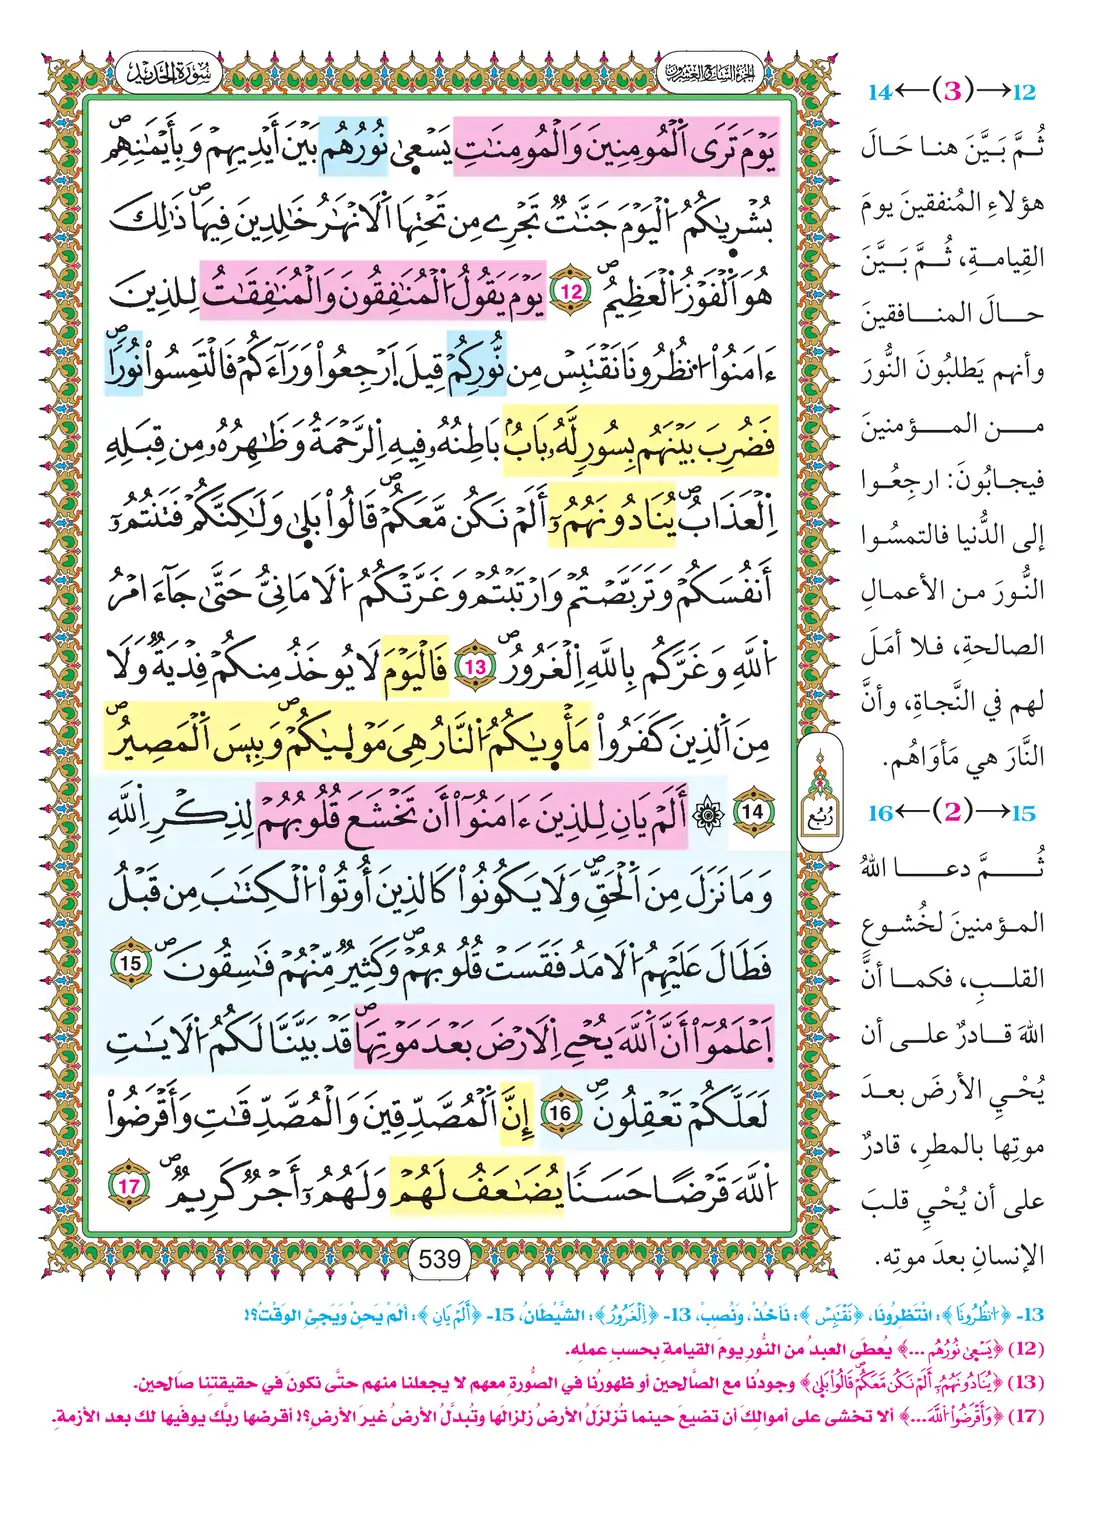 الجزء السابع والعشرون
سورة الحديد
يَوْمَ تَرَى اَلْمُومِنِينَ وَالْمُومِنَٰتِ يَسْعىٰ نُورُهُم بَيْنَ أَيْدِيهِمْ وَبِأَيْمَٰنِهِمۖ
بُشْر۪يٰكُمُ اُلْيَوْمَ جَنَّٰتٞ تَجْرِے مِن تَحْتِهَا اَلَانْهَٰرُ خَٰلِدِينَ فِيهَاۖ ذَٰلِكَ
هُوَ اَلْفَوْزُ اُلْعَظِيمُۖ 12 يَوْمَ يَقُولُ اُلْمُنَٰفِقُونَ وَالْمُنَٰفِقَٰتُ لِلذِينَ
ءَامَنُواْ اُنظُرُونَا نَقْتَبِسْ مِن نُّورِكُمْ قِيلَ اَرْجِعُواْ وَرَآءَكُمْ فَالْتَمِسُواْ نُوراٗۖ
فَضُرِبَ بَيْنَهُم بِسُورٖ لَّهُۥ بَابُۢ بَاطِنُهُۥ فِيهِ اِلرَّحْمَةُ وَظَٰهِرُهُۥ مِن قِبَلِهِ
اِلْعَذَابُۖ يُنَادُونَهُمُۥٓ أَلَمْ نَكُن مَّعَكُمْۖ قَالُواْ بَلىٰ وَلَٰكِنَّكُمْ فَتَنتُمُۥٓ
أَنفُسَكُمْ وَتَرَبَّصْتُمْ وَارْتَبْتُمْ وَغَرَّتْكُمُ اُلَامَانِيُّ حَتَّىٰ جَآءَ امْرُ
اُللَّهِ وَغَرَّكُم بِاللَّهِ اِلْغَرُورُۖ 13 فَالْيَوْمَ لَا يُوخَذُ مِنكُمْ فِدْيَةٞ وَلَا
مِنَ اَلذِينَ كَفَرُواْ مَأْو۪يٰكُمُ اُلنَّارُ هِيَ مَوْل۪يٰكُمْۖ وَبِيسَ اَلْمَصِيرُۖ
14 أَلَمْ يَانِ لِلذِينَ ءَامَنُوٓاْ أَن تَخْشَعَ قُلُوبُهُمْ لِذِكْرِ اِللَّهِ
وَمَا نَزَلَ مِنَ اَلْحَقِّۖ وَلَا يَكُونُواْ كَالذِينَ أُوتُواْ اُلْكِتَٰبَ مِن قَبْلُ
فَطَالَ عَلَيْهِمُ اُلَامَدُ فَقَسَتْ قُلُوبُهُمْۖ وَكَثِيرٞ مِّنْهُمْ فَٰسِقُونَۖ 15
اَعْلَمُوٓاْ أَنَّ اَللَّهَ يُحْيِ اِلَارْضَ بَعْدَ مَوْتِهَاۖ قَدْ بَيَّنَّا لَكُمُ اُلَايَٰتِ
لَعَلَّكُمْ تَعْقِلُونَۖ 16 إِنَّ اَلْمُصَّدِّقِينَ وَالْمُصَّدِّقَٰتِ وَأَقْرَضُواْ
اُللَّهَ قَرْضاً حَسَناٗ يُضَٰعَفُ لَهُمْ وَلَهُمُۥٓ أَجْرٞ كَرِيمٞۖ 17
539
رُبُع
12→(3)←14
ثُمَّ بَيَّنَ هنا حَالَ
هؤلاءِ المُنفقينَ يومَ
القِيامةِ، ثُمَّ بَيَّنَ
حالَ المنافقينَ
وأنهم يَطلبُونَ النُّورَ
من المؤمنينَ
فيجابُونَ: ارجِعُوا
إلى الدُّنيا فالتمسُوا
النُّورَ من الأعمالِ
الصالحةِ، فلا أمَلَ
لهم في النَّجاةِ، وأنَّ
النَّارَ هي مَأوَاهُم.
15→(2)←16
ثُمَّ دعا اللهُ
المؤمنينَ لخُشوعِ
القلبِ، فكما أنَّ
اللهَ قادرٌ على أن
يُحْيِ الأرضَ بعدَ
موتِها بالمطرِ، قادرٌ
على أن يُحْيِ قلبَ
الإنسانِ بعدَ موتِه.
13- ﴿اُنظُرُونَا﴾: انْتَظِرُونَا، ﴿نَقْتَبِسْ﴾: نَأخُذْ، ونُصِبْ، 13- ﴿اِلْغَرُورُ﴾: الشَّيْطَانُ، 15- ﴿أَلَمْ يَانِ﴾: ألَمْ يَحِنْ وَيَجِئِ الوَقْتُ؟!
(12) ﴿يَسْعىٰ نُورُهُم ...﴾ يُعطَى العبدُ من النُّورِ يومَ القيامةِ بحسبِ عملِه.
(13) ﴿يُنَادُونَهُمُۥٓ أَلَمْ نَكُن مَّعَكُمْۖ قَالُواْ بَلىٰ﴾ وجودُنا مع الصَّالحين أو ظهورُنا في الصُّورةِ معهم لا يجعلنا منهم حتَّى نكونَ في حقيقتِنا صَالحين.
(17) ﴿وَأَقْرَضُواْ اُللَّهَ...﴾ ألا تخشى على أموالِكَ أن تضيعَ حينما تُزلزَلُ الأرضُ زلزالَها وتُبدَّلُ الأرضُ غيرَ الأرضِ؟! أقرضها ربَّك يوفِّيها لك بعد الأزمةِ.